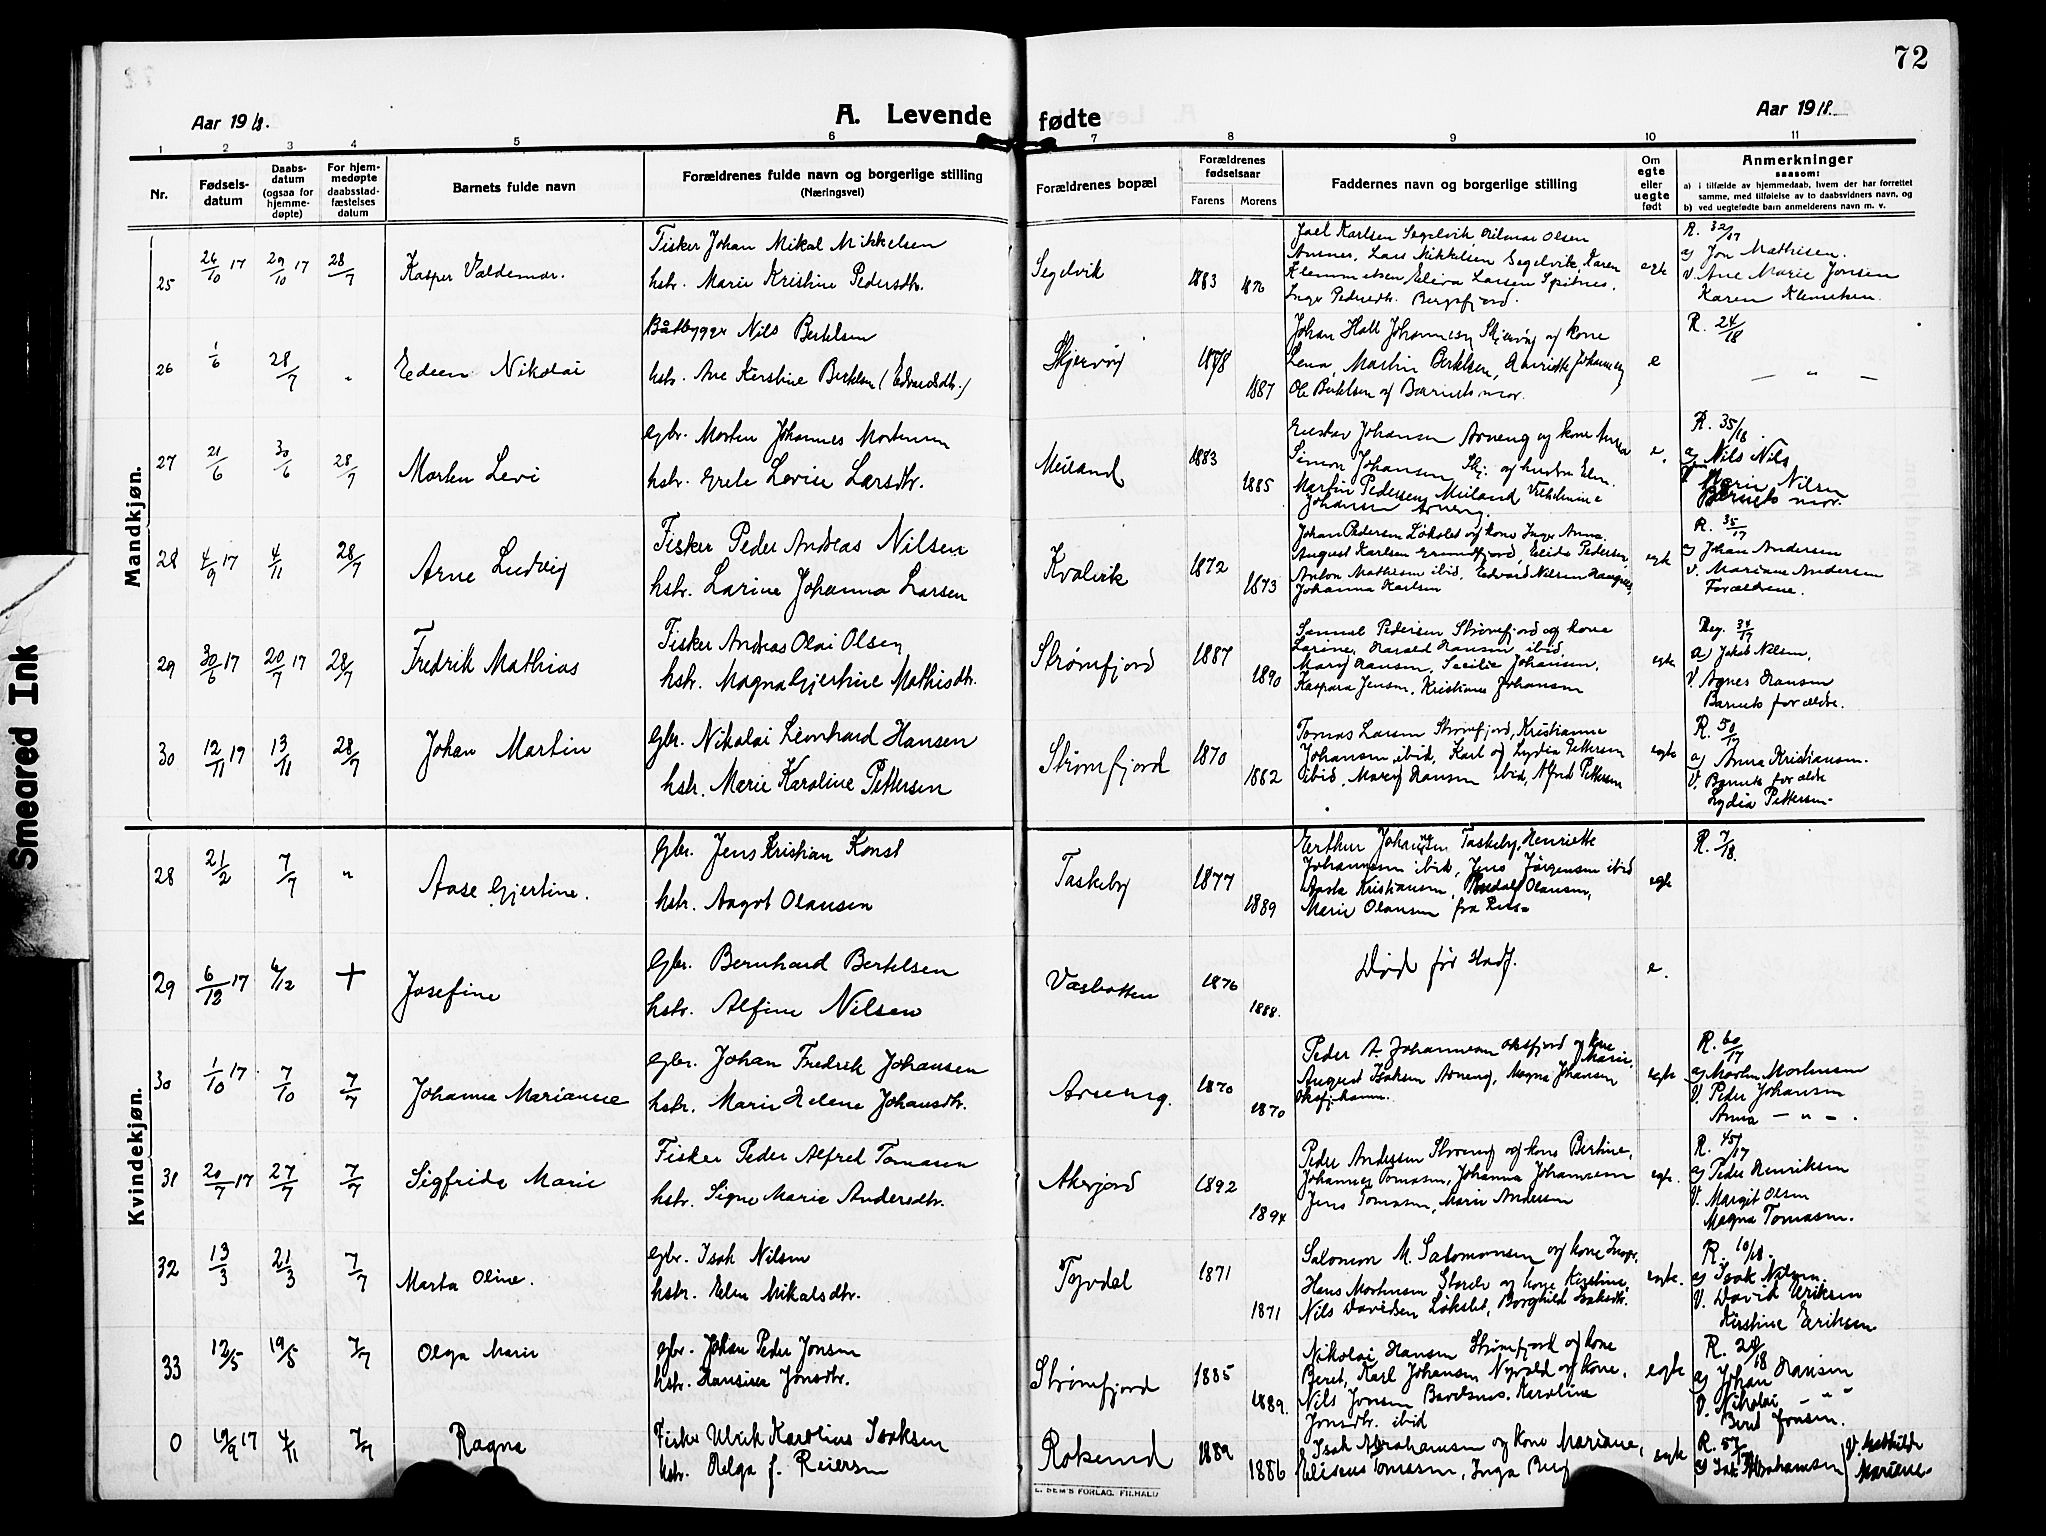 72
Aar 1918.
A. Levende fødte
Aar 1918.
1 2 3 4 5 6 7 8 9 10 11
Nr.
Fødsels-
datum
Daabs-
datum
(ogsaa for
hjemme-
døpte)
For hjem-
medøpte
daabsstad-
fæstelses
datum
Barnets fulde navn
Forældrenes fulde navn og borgerlige stilling
(Næringsvei)
Forældrenes bopæl
Forældrenes
fødselsaar
Farens Morens
Faddernes navn og borgerlige stilling
Om
egte
eller
uegte
født
Anmerkninger
saasom:
a) i tilfælde av hjemmedaab, hvem der har forrettet
samme, med tilføielse av to daabsvidners navn, og
b) ved uegtefødte barn anmelderens navn m. v.
Mandkjøn.
25 26/10 17 29/10 17 28/7 Kasper Valdemar.
Fisker Johan Mikal Mikkelsen
hstr. Marie Kristine Pedersdtr.
Segelvik 1883
Joel Karlsen Segelvik Hilmar Olsen
Lars Mikkelsen Segelvik, Karen
Klemmetsen Larsen Spitnes,
Inger Pedersdtr. Bergsfjord.
egte
R. 32/17
a) Jon Mathisen.
V. Ane Marie Jonsen
Karen Klemetsen.
26 1/6 28/7 "
Edeen Nikolai
Båtbygger Nils Bertelsen
hstr. Ane Kerstine Bertelsen (Edvardsdtr.)
Skjervøy 1878 1887
Johan Hall Johannesen Skjervøy og kone
Lena, Martin Bertelsen, Henriette Johannesen
Ole Bertelsen og Barnets mor.
e
R. 24/18
— " —
27 21/6 30/6 28/7 Morten Levi
Gbr. Morten Johannes Mortensen
hstr. Grete Lovise Larsdtr.
Meiland 1883 1885
Johansen Arneng og kone
Simon Johansen Skj. og hustru Elen.
Martin Pedersen Meiland Vilhelmine
Johansen Arneng.
e.
R. 35/18.
a) Nils Nils
V. Marie Nilsen
Barnets mor.
28 4/9 17 4/11 28/7 Arne Ludvig
Fisker Peder Andreas Nilsen
hstr. Larine Johanna Larsen
Kvalvik 1872 1873
Johan Pedersen Løkslet og kone Inger Anna.
August Karlsen Grundfjord, Pedersen,
Anton Mathisen ibid, Edvard Nilsen
Johanna Karlsen
egte
R. 35/17
a) Johan Andersen
V. Mariane Andersen
Forældrene.
29 30/6 17 20/7 17 28/7 Fredrik Mathias
Fisker Andreas Olai Olsen
hstr. Magna Gjertine Mathisdtr.
Strømfjord 1887 1890
Samuel Pedersen Strømfjord og kone
Larine, Harald Hansen ibid,
Mary Hansen, Secilie Johansen,
Kaspara Jensen, Kristiane Johansen
egte
Reg. 34/17
a) Jakob Nilsen,
V. Agnes Hansen
Barnets forældre.
30 12/11 17 13/11 28/7 Johan Martin
Gbr. Nikolai Leonhard Hansen
hstr. Marie Karoline Pettersen
Strømfjord 1870 1882
Tomas Larsen Strømfjord, Kristianne
Johansen ibid, Karl og Lydia Pettersen
ibid, Mary Hansen ibid, Alfred Pettersen
egte
R. 50/17
a) Anna Kristiansen.
V. Barnets forældre
Lydia Pettersen.
Kvindekjøn.
28 21/2 7/7 " Aase Gjertine.
Gbr. Jens Kristian Konst
hstr. Aagot Olausen
Taskeby 1877 1889
Erthur Johansen Taskeby, Henriette
Johannesen ibid, Jens Jørgensen ibid
Kristiansen, Olausen,
Marie Olausen fra
egte
R. 7/18.
29 6/12 17 6/12 + Josefine
Gbr. Bernhard Bertelsen
hstr. Alfine Nilsen
Vasbotten 1876 1888.
Død før stadf.
e.
30 1/10 17 7/10 7/7 Johanne Marianne
Gbr. Johan Fredrik Johansen
hstr. Marie Helene Johansdtr.
Arneng. 1870 1870
Peder A. Johannesen Oksfjord og kone
Marie,
August Isaksen Arneng, Magna Johansen
Oksfj.hamn.
egte
R. 60/17
a) Morten Mortensen
V. Peder Johansen
Anna — " — .
31 20/7 17 27/7 7/7 Sigfride Marie
Fisker Peder Alfred Tomasen
hstr. Signe Marie Andersdtr.
Akerjord 1892 1894
Peder Andersen og kone Bertine,
Johannes Tomasen, Johanna Johannesen
Jens Tomasen, Marie Andersen
egte.
R. 45/17
a) Peder Henriksen
V. Margit Olsen
Magna Tomasen.
32 13/3 21/3 7/7 Marta Oline.
Gbr. Isak Nilsen
hstr. Elen Mikalsdtr.
Tyvdal 1871 1871
Salomon M. Salomonsen og kone Inger,
Hans Mortensen Storelv og kone Kirstine,
Nils Davidsen Løkslet, Borghild Isaksdtr.
egte.
R. 10/18.
a) Isak Nilsen.
V. David Eriksen
Kirstine Eriksen
33 12/5 19/5 7/7 Olga Marie
gbr. Johan Peder Jonsen
hstr. Hansine Jonsdtr.
Strømfjord 1885 1889.
Nikolai Hansen Strømfjord og kone
Beret, Karl Johansen Nyvold og kone,
Nils Jonsen Karoline
Jonsdtr. ibid
egte
R. 28/18
a) Johan Hansen
V. Nikolai — " —
Beret Jonsen.
0 19/9 17 4/11 7/7 Ragna
Fisker Ulrik Karolius Isaksen
hstr. Helga f. Reiersen
Roksund 1889 1886
Isak Abrahamsen og kone Mariane,
Eliseus Tomasen, Inga Berg
egte
R. 57/17
a) Isak Abrahamsen
V. Mathilde
Mariane.
E. SEM'S FORLAG, FR.HALD
Smeared Ink